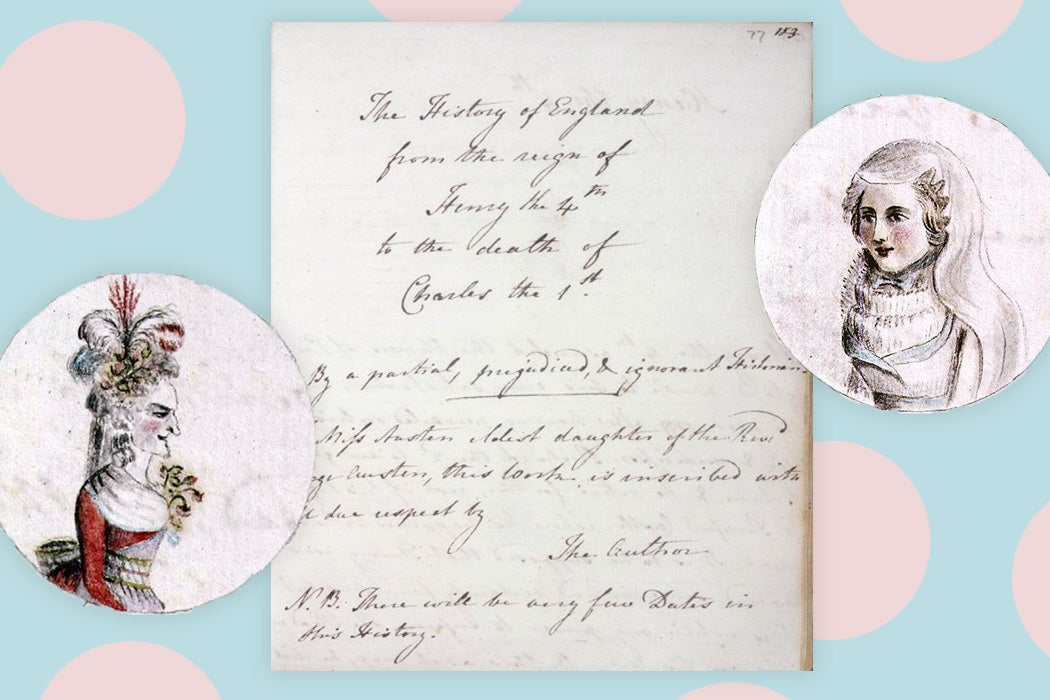 77 153
The History of England
from the reign of
Henry the 4th
to the death of
Charles the 1st.
By a partial, prejudiced, & ignorant Historian.
Miss Austen eldest daughter of the Revd
Austen, this Work is inscribed with
due respect by
The Author
N.B. There will be very few Dates in
this History.